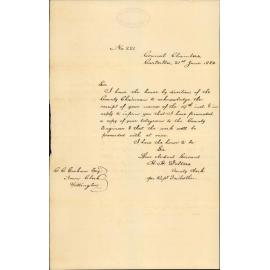 No. 221
Council Chambers,
Carterton, 21st June 1882
Sir
I have the honor by direction of the
County Chairman to acknowledge the
receipt of your memo of the 19th inst & in
reply to inform you that I have forwarded
a copy of your telegram to the County
Engineer & that the work will be
proceeded with at once.
I have the honor to be
Sir
Your obedient Servant
County Clerk
Esq
Wellington